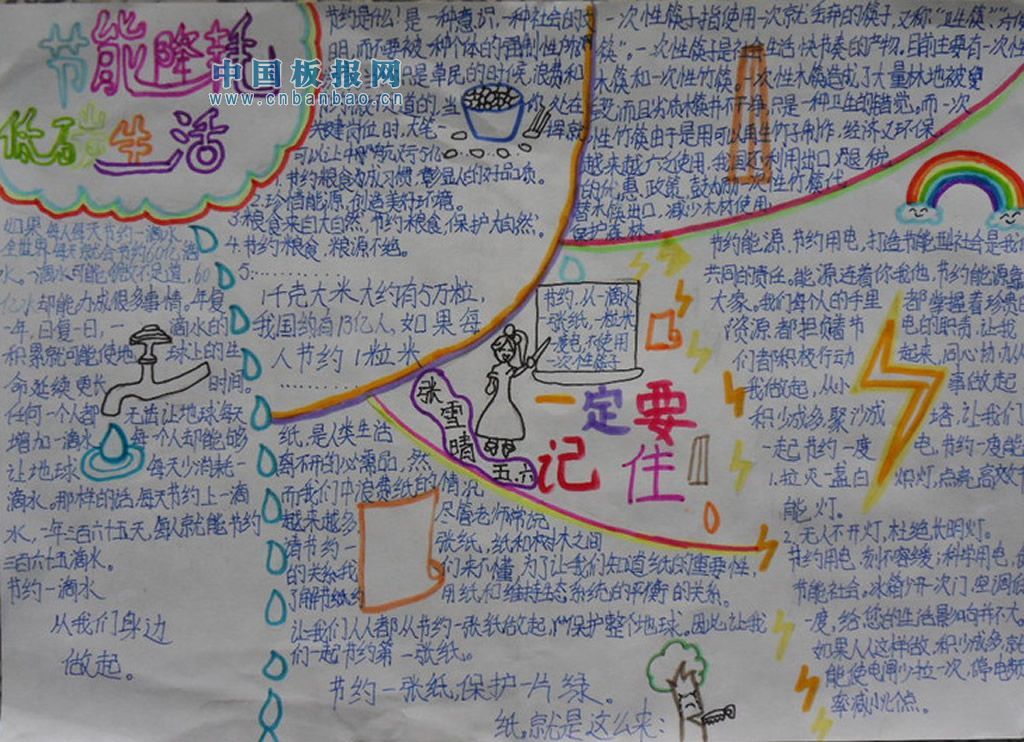 节能降耗
低碳生活
中国板报网
www.cnbanbao.cn
节约是什么!是一种意识,一种社会的文
明,而不要被一种个体的强制性所
可以让
1.节约粮食为成习惯,彰显人的好品质。
2.珍惜能源,创造美好环境。
3.粮食来自大自然,节约粮食,保护大自然。
4.节约粮食,粮源不绝。
5…………
1千克大米大约有5万粒,
我国约有13亿人,如果每
人节约1粒米
…………
一次性筷子指使用一次就丢弃的筷子,又称:“卫生筷”
筷”。一次性筷子是社会生活快节奏的产物。目前主要有一次性
木筷和一次性竹筷。一次性木筷造成了大量林地被
而且劣质木筷并不干净,只是一种卫生的错觉。而一次
性竹筷由于是用可以再生竹子制作,经济又环保。
越来越广泛使用,我国还利用出口退税
的优惠政策,鼓励一次性竹筷代
替木筷出口,减少木材使用
保护森林。
如果每人每天节约一滴水
全世界每天就会节约60亿滴
水。一滴水可能微不足道,60
亿水却能办成很多事情。年复
一年,日复一日,一滴水的
积累就可能使地球上的生
命延续更长时间。
任何一个人都无法让地球每天
增加一滴水,每个人却能够
让地球每天少消耗一
滴水。那样的话,每天节约上一滴
水,一年三百六十五天,每人就能节约
三百六十五滴水。
节约一滴水
从我们身边
做起。
节约,从一滴水
一张纸,一粒米
一度电,不使用
一次性筷子
张雪晴
五.六
一定要
记住
纸,是人类生活
离不开的必需品,然
而我们中浪费纸的情况
越来越多 尽管老师常说
请节约一张纸,纸和树木之间
的关系我们并不懂,为了让我们知道纸的重要性,
了解节纸 用纸和维持生态系统的平衡的关系。
让我们人人都从节约一张纸做起,保护整个地球。因此让我
们一起节约第一张纸。
节约一张纸,保护一片绿。
纸,就是这么来:
节约能源,节约用电,打造节能型社会是我们
共同的责任。能源连着你我他,节约能源靠
大家。我们每个人的手里都掌握着珍贵的
资源,都担负着节电的职责,让我
们都积极行动起来,同心协力从
我做起,从小事做起
积少成多,聚沙成塔,让我们
一起节约一度电,节约一度能
1.拉灭一盏白炽灯,点亮高效节
能灯。
2.无人不开灯,杜绝长明灯。
节约用电,刻不容缓,科学用电,
节能社会。冰箱少开一次门,空调低
一度,给您的生活影响并不大。
如果人人这样做,积少成多,就
能使电闸少拉一次,停电频
率减小一个点。